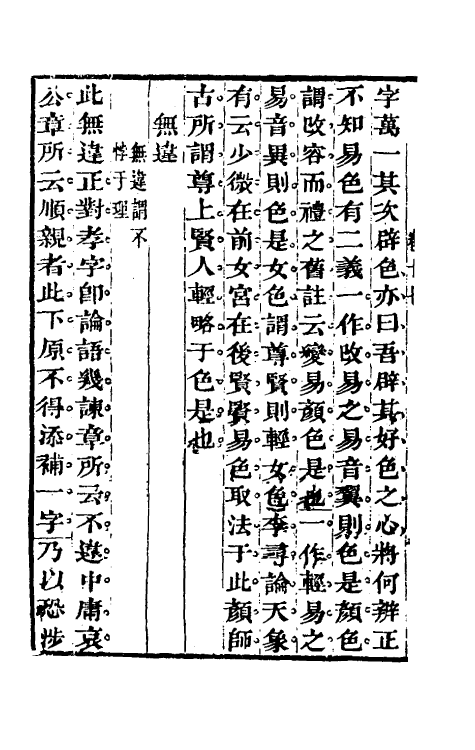 字萬一其次辟色亦曰吾辟其好色之心將何辨正
不知易色有二義一作改易之易音異則色是顏色
謂改容而禮之舊註云變易顏色是也一作輕易之
易音異則色是女色謂尊賢則輕女色李尋論天象
有云少微在前女宮在後賢賢易色取法于此顏師
古所謂尊上賢人輕略于色是也
無違
無違謂不
悖于理
此無違正對孝字卽論語幾諫章所云不違中庸哀
公章所云順親者此下原不得添補一字乃以恐涉